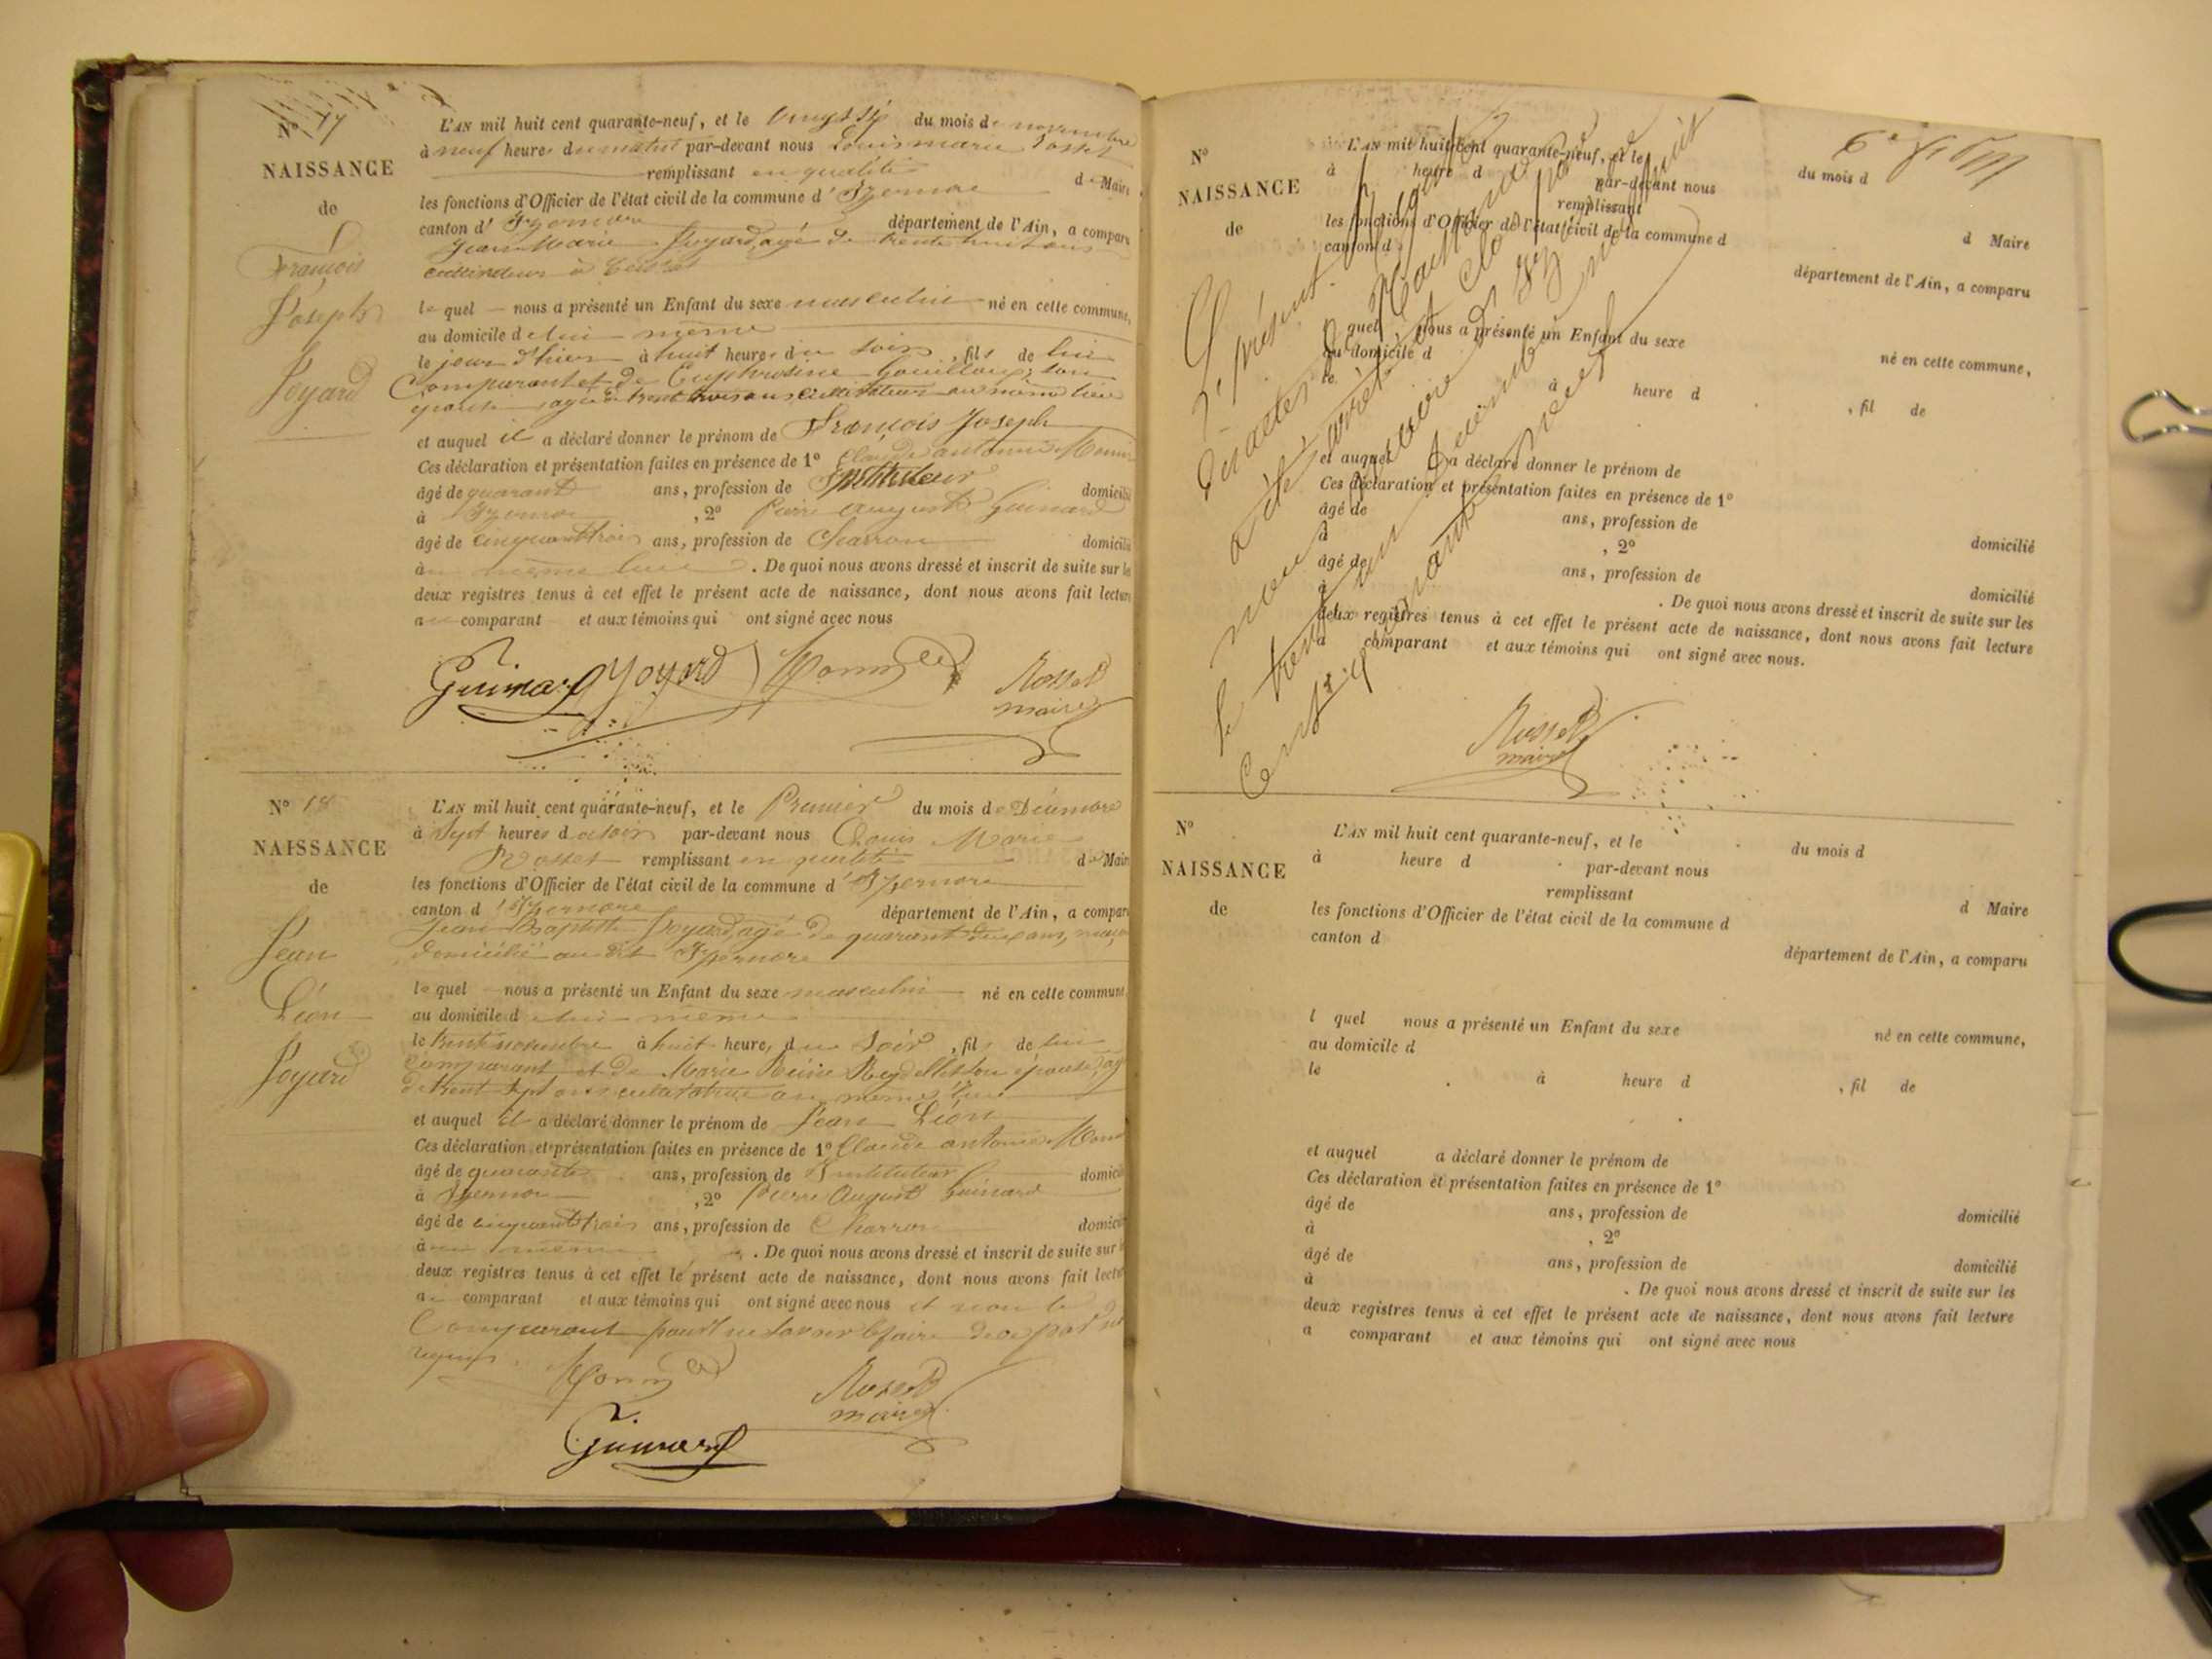 N° 17
NAISSANCE
de
François
Joseph
Joyard
L'AN mil huit cent quarante-neuf, et le vingt six du mois de novembre
à neuf heures du matin par-devant nous Louis marie Rosset
remplissant en qualité de Maire
les fonctions d'Officier de l'état civil de la commune d'Izernore
canton d'Izernore département de l'Ain, a comparu
Jean Marie Joyard, agé de trente huit ans
cultivateur à
le quel nous a présenté un Enfant du sexe masculin né en cette commune,
au domicile de lui même
le jour d'hier à huit heures du soir, fils de lui
Comparant et de Euphrosine Gouilloux, son
épouse, agée de trente trois ans, cultivateur au même lieu
et auquel il a déclaré donner le prénom de François Joseph
Ces déclaration et présentation faites en présence de 1° Claude antoine
âgé de quarante ans, profession de Instituteur domicilié
à Izernore, 2° Pierre auguste Guinard
âgé de cinquante trois ans, profession de Charron domicilié
au même lieu. De quoi nous avons dressé et inscrit de suite sur les
deux registres tenus à cet effet le présent acte de naissance, dont nous avons fait lecture
au comparant et aux témoins qui ont signé avec nous
Guinard Joyard
Rosset
maire
N° 18
NAISSANCE
de
Jean
Léon
Joyard
L'AN mil huit cent quarante-neuf, et le Premier du mois de Décembre
à Sept heures du soir par-devant nous Louis Marie
Rosset remplissant en qualité de Maire
les fonctions d'Officier de l'état civil de la commune d'Izernore
canton d'Izernore département de l'Ain, a comparu
Jean Baptiste Joyard agé de quarante deux ans, maçon
domicilié au dit Izernore
le quel nous a présenté un Enfant du sexe masculin né en cette commune,
au domicile de lui même
le trente novembre à huit heures du soir, fils de lui
comparant et de Marie Reine Reydellet son épouse, agé
de trente sept ans cultivatrice au même lieu
et auquel il a déclaré donner le prénom de Jean Léon
Ces déclaration et présentation faites en présence de 1° Claude antoine
âgé de quarante ans, profession de Instituteur domicilié
à Izernore, 2° Pierre August Guinard
âgé de cinquante trois ans, profession de Charron domicilié
au même. De quoi nous avons dressé et inscrit de suite sur les
deux registres tenus à cet effet le présent acte de naissance, dont nous avons fait lecture
au comparant et aux témoins qui ont signé avec nous et non le
Comparant pour ne savoir le faire de ce
requis.
Rosset
maire
Guinard
N°
NAISSANCE
de
L'AN mil huit cent quarante-neuf, et le du mois d
à heure d par-devant nous
remplissant d Maire
les fonctions d'Officier de l'état civil de la commune d
canton d département de l'Ain, a comparu
l quel nous a présenté un Enfant du sexe né en cette commune,
au domicile d
le à heure d , fil de
et auquel a déclaré donner le prénom de
Ces déclaration et présentation faites en présence de 1°
âgé de ans, profession de domicilié
à , 2°
âgé de ans, profession de domicilié
à . De quoi nous avons dressé et inscrit de suite sur les
deux registres tenus à cet effet le présent acte de naissance, dont nous avons fait lecture
a comparant et aux témoins qui ont signé avec nous.
Le présent
des actes de
a été arrêté et clos par
nous maire d'Izernore
le trente un Décembre mil huit
Cent quarante neuf
Rosset
maire
N°
NAISSANCE
de
L'AN mil huit cent quarante-neuf, et le du mois d
à heure d par-devant nous
remplissant d Maire
les fonctions d'Officier de l'état civil de la commune d
canton d département de l'Ain, a comparu
l quel nous a présenté un Enfant du sexe né en cette commune,
au domicile d
le à heure d , fil de
et auquel a déclaré donner le prénom de
Ces déclaration et présentation faites en présence de 1°
âgé de ans, profession de domicilié
à , 2°
âgé de ans, profession de domicilié
à . De quoi nous avons dressé et inscrit de suite sur les
deux registres tenus à cet effet le présent acte de naissance, dont nous avons fait lecture
a comparant et aux témoins qui ont signé avec nous